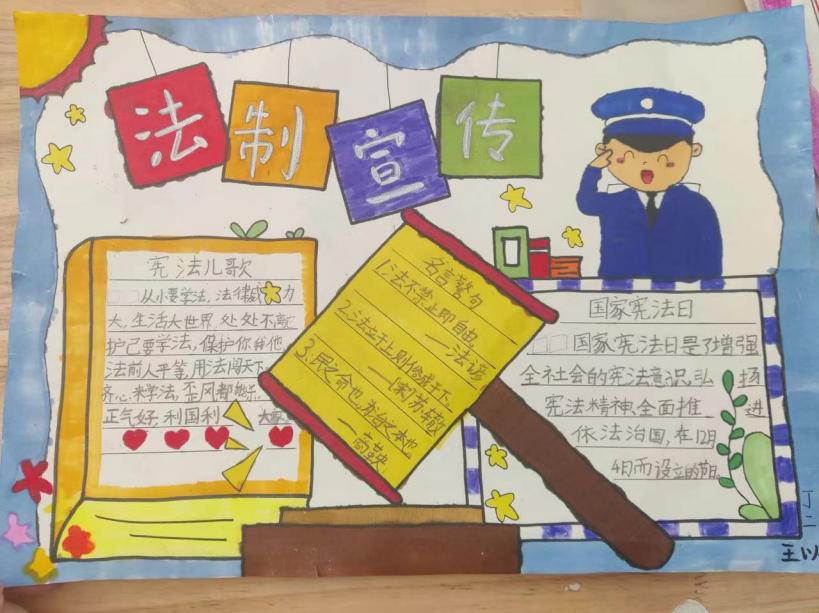 法制宣传
宪法儿歌
从小要学法,法律威力
大,生活大世界,处处不离
护己要学法,保护你和他
法前人平等,用法闯天下
齐心来学法,歪风都
正气好,利国利 大家
名言警句
1.法不禁止即自由。
——法谚
2.法立于上,则俗成于下。
——[宋]苏辙
3.民之命也,为治之本也
——商鞅
国家宪法日
国家宪法日是了增强
全社会的宪法意识,弘扬
宪法精神,全面推进
依法治国,在12月
4日而设立的节日